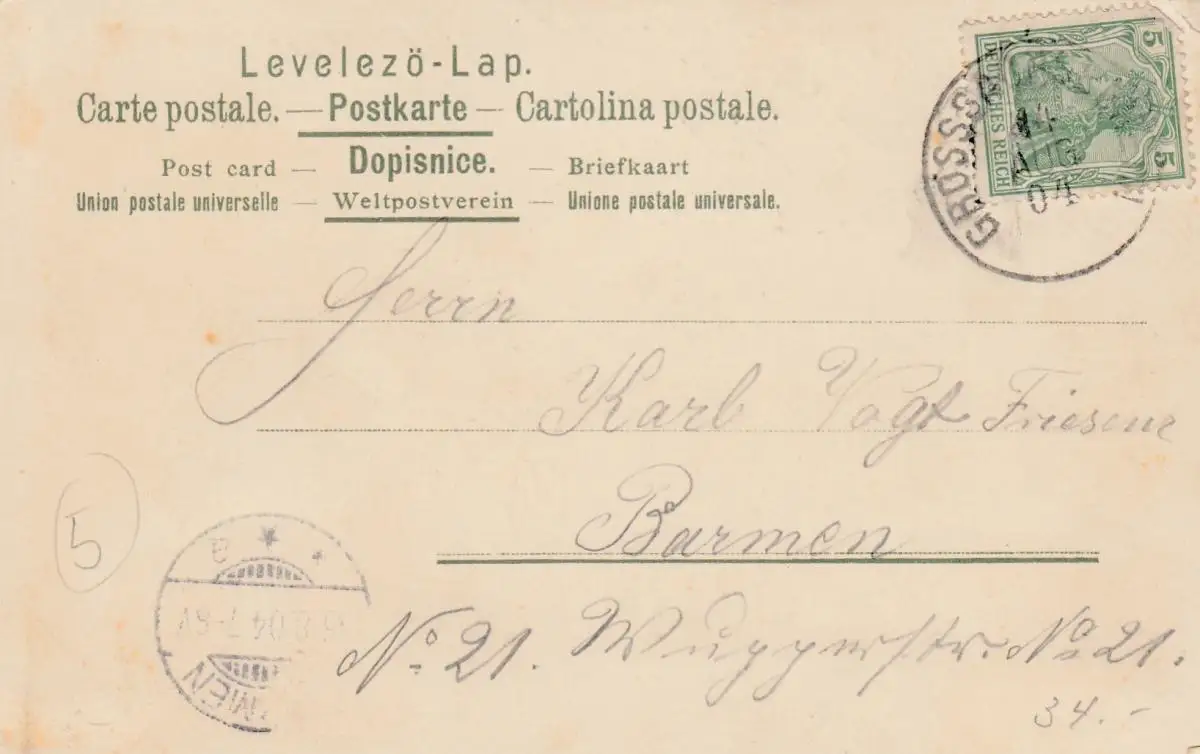 Levelezö-Lap.
Carte postale. — Postkarte — Cartolina postale.
Post card — Dopisnice. — Briefkaart
Union postale universelle — Weltpostverein — Unione postale universale.
5 DEUTSCHES REICH 5
14
AUG
04
Herrn
Karl Vogt Friseur
Barmen
No 21. Wupperstr. No 21.
5
34.-